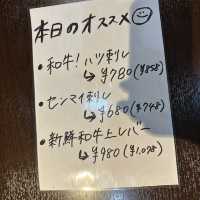 本日のオススメ
・和牛!ハツ刺し
↳¥780(¥858)
・センマイ刺し
↳¥680(¥748)
・新鮮和牛上レバー
↳¥980(¥1,078)